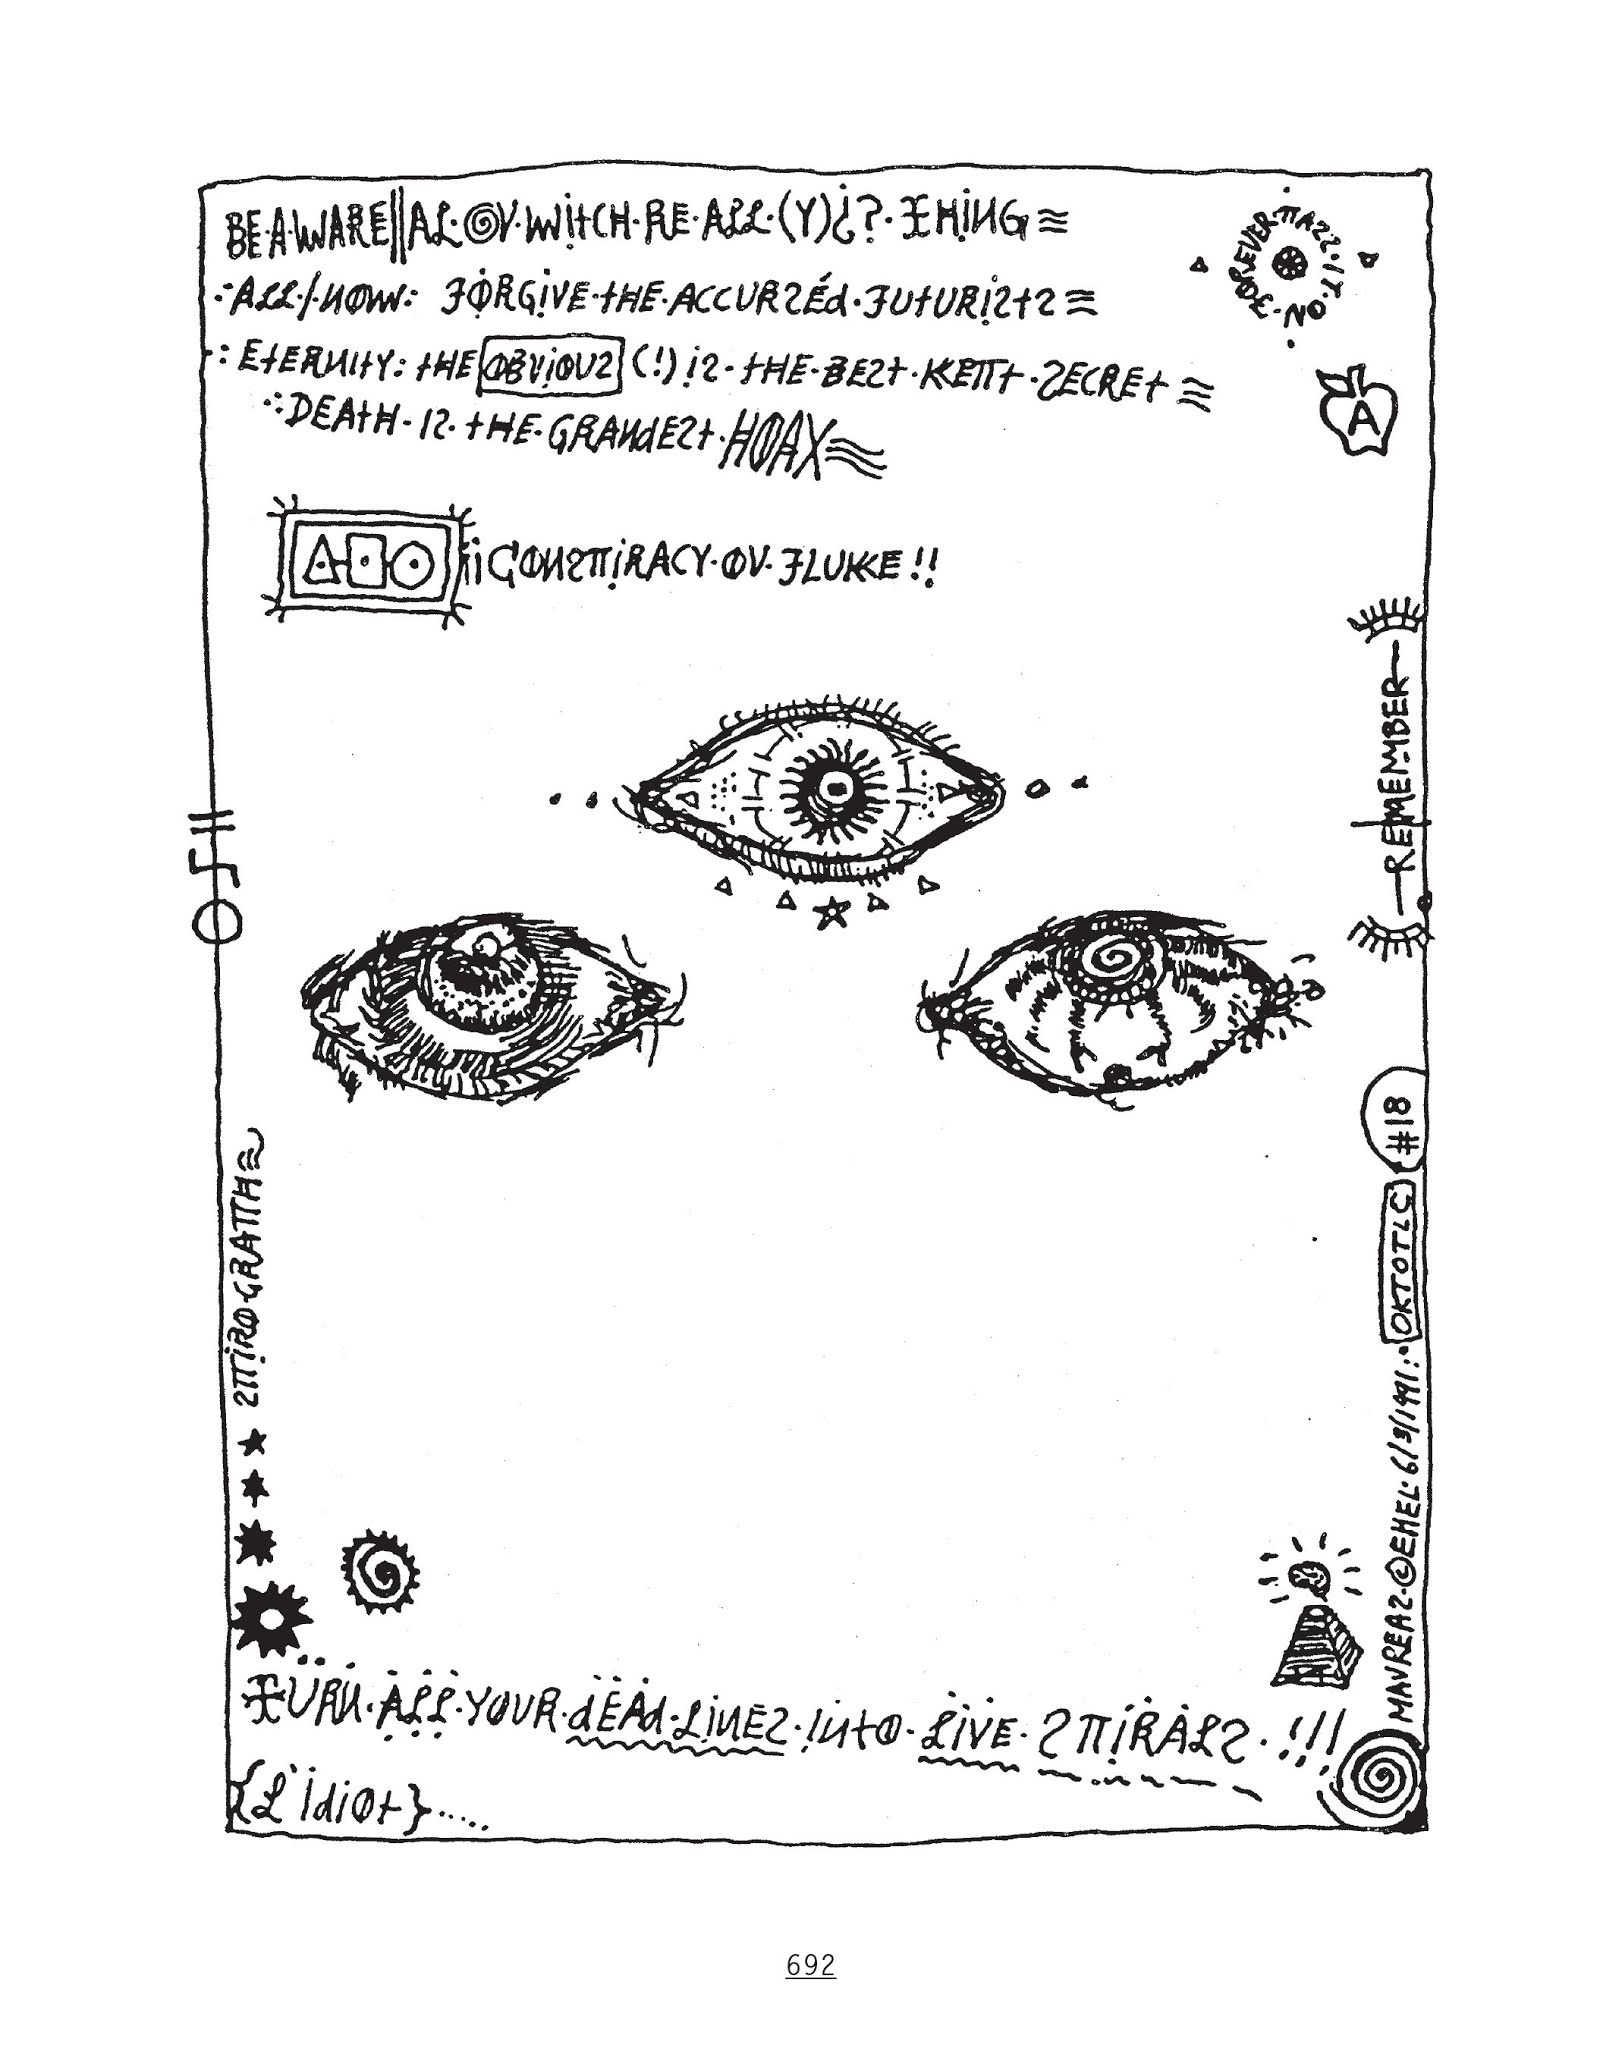 BE·A·WARE||AL·OV·WiTCH·RE·ALL·(Y)¿?·THiNG≋
∴ALL/NOW: FORGiVE·tHE·ACCURSÉd·FUtURiStS≋
∴EtERNItY: tHE OBViOUS (!) iS·tHE·BESt·KEΠt·SECREt≋
∴DEAtH·IS·tHE·GRANdESt·HOAX≋
¡CONSΠiRACY·OV·FLUKE!!
FOREVER·ΠASS·IT·ON
A
—REMEMBER—
SΠiRO·GRAΠH≋
MAVREAS·©EHEL·6/3/1991·OKTOTLC #18
TURN·ALL·YOUR·dEAd·LiNES·iNtO·LiVE·SΠiRALS·!!!
{L'idiOt}.....
692